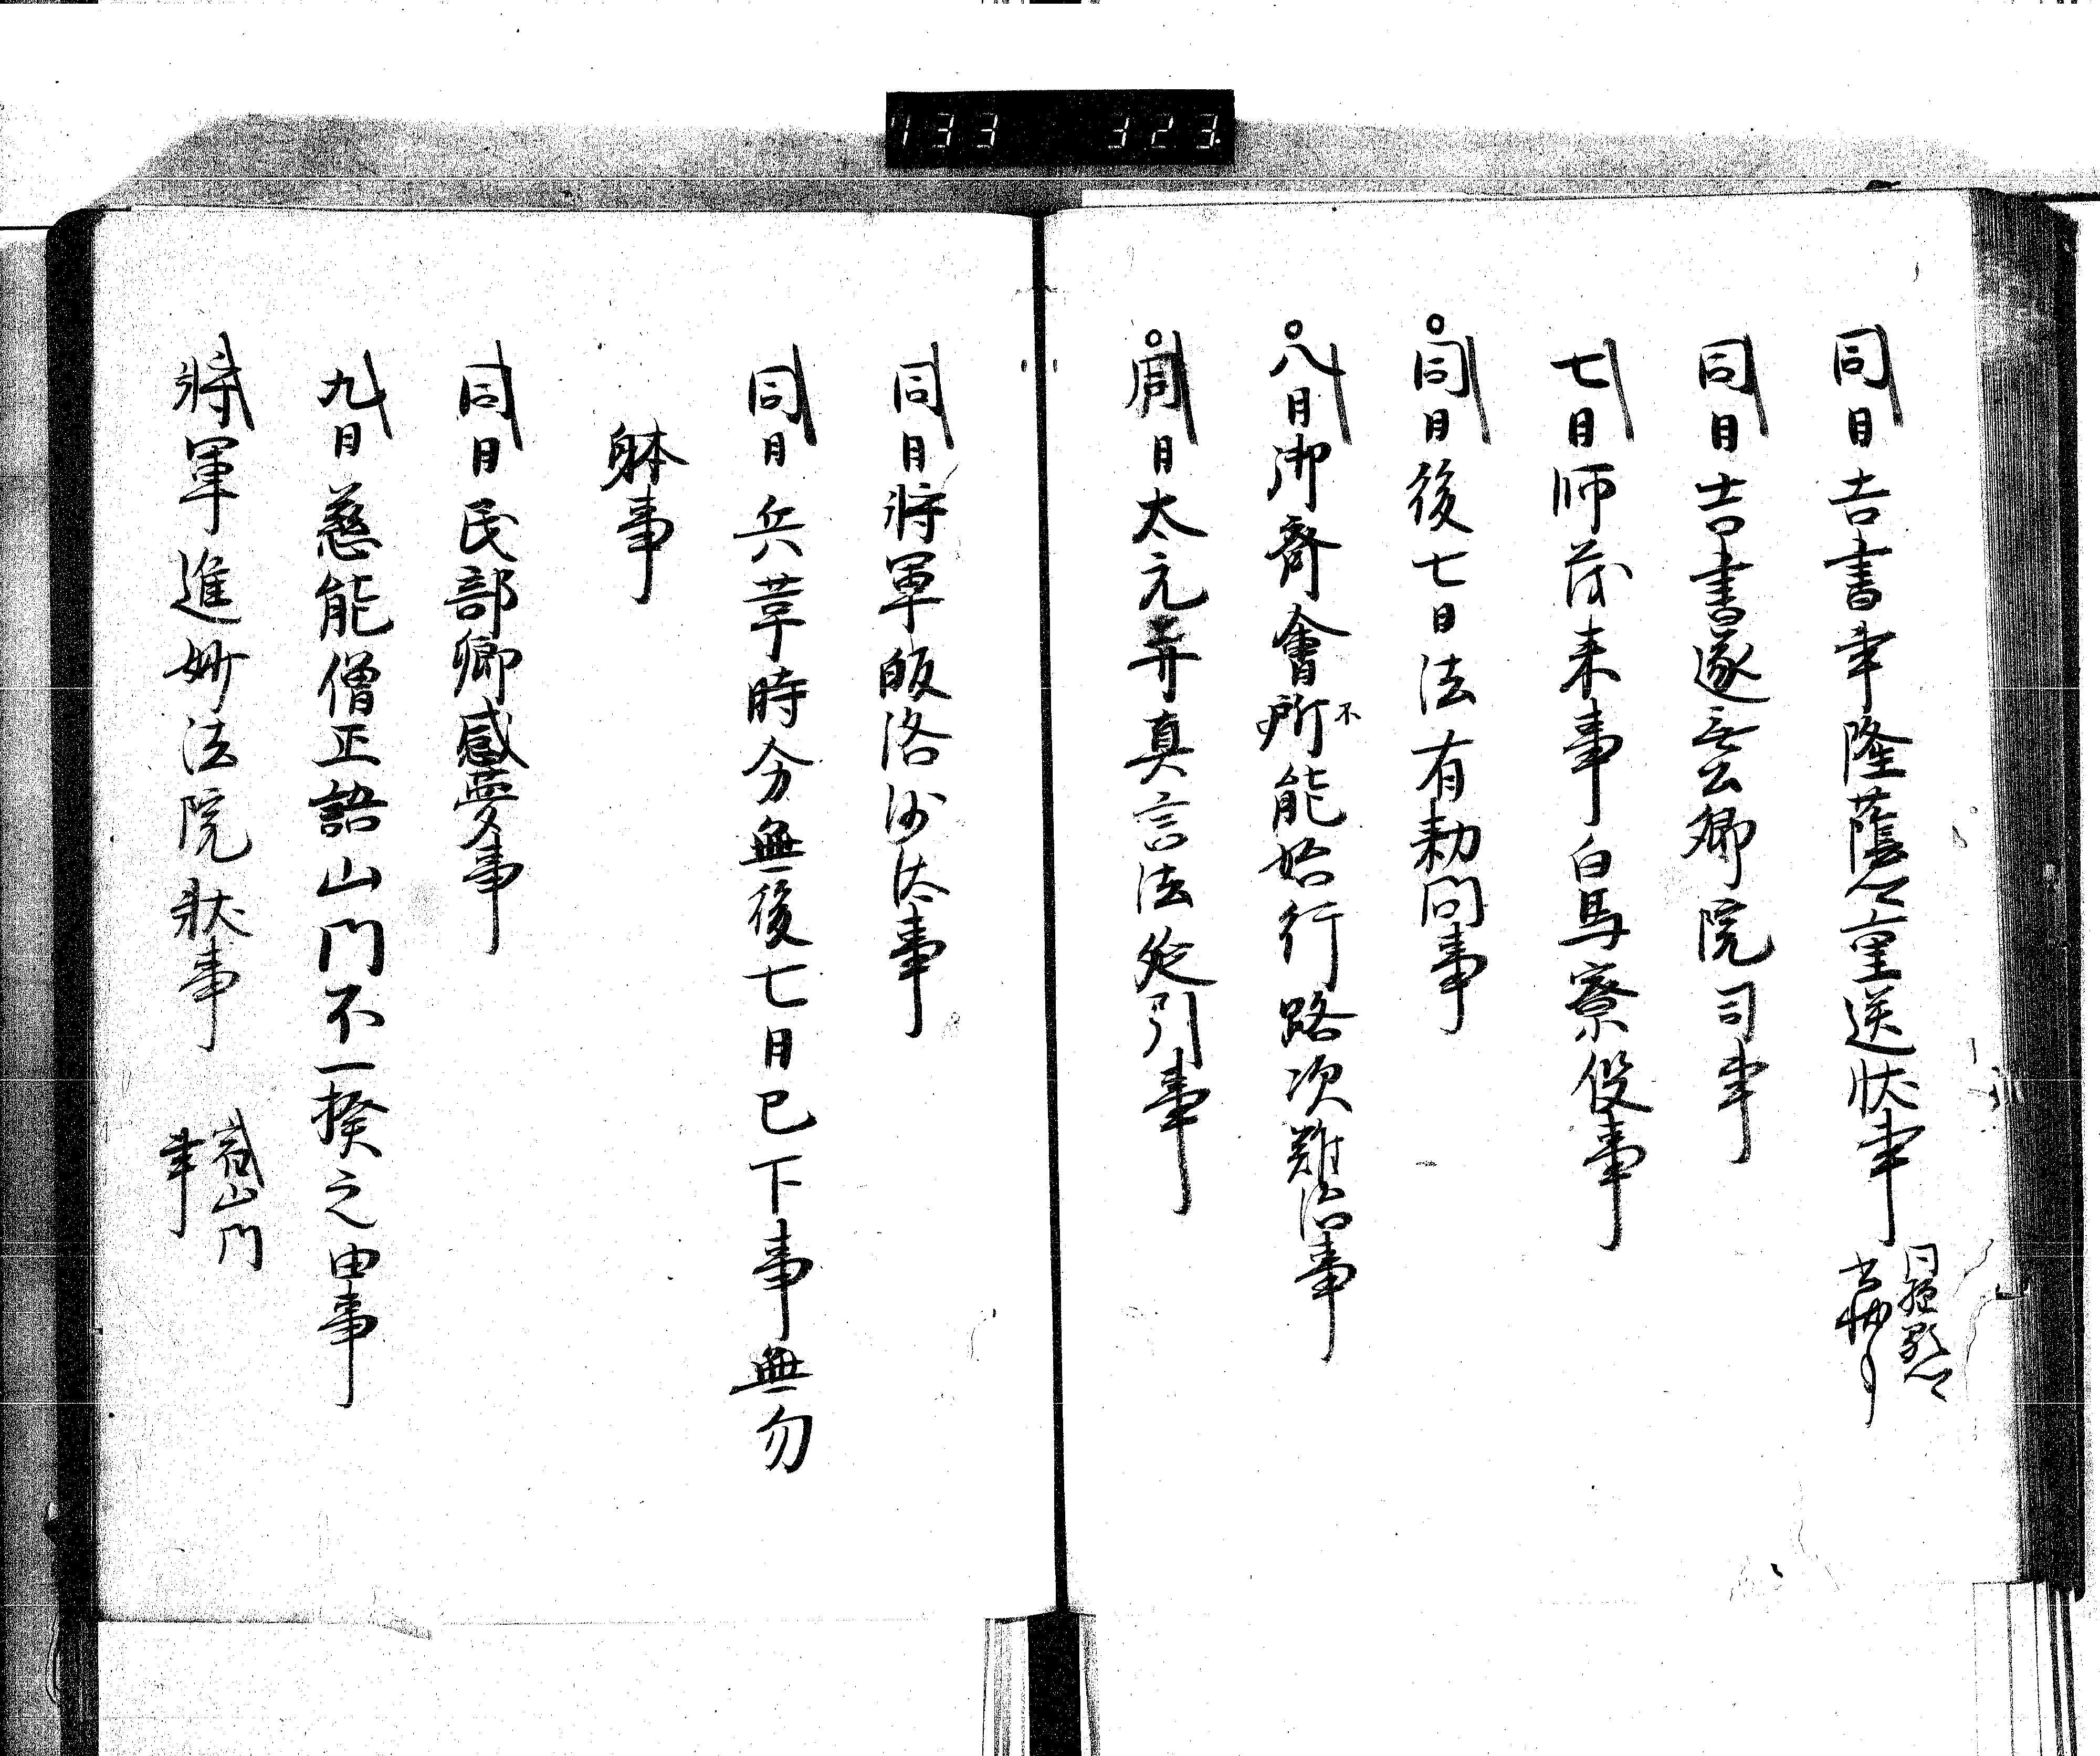 133 323
同日吉書事隆蔭卿重送状事
同日吉書遂無公卿院司事
七日師茂来事白馬寮役事
同日後七日法有勅問事
八日御斎會所不能始行路次難治事
同日太元并真言法延引事
同日将軍皈洛沙汰事
同日兵革時分無後七日已下事無勿
躰事
同日民部卿感夢事
九日慈能僧正語山門不一揆之由事
将軍進妙法院状事 山門
事